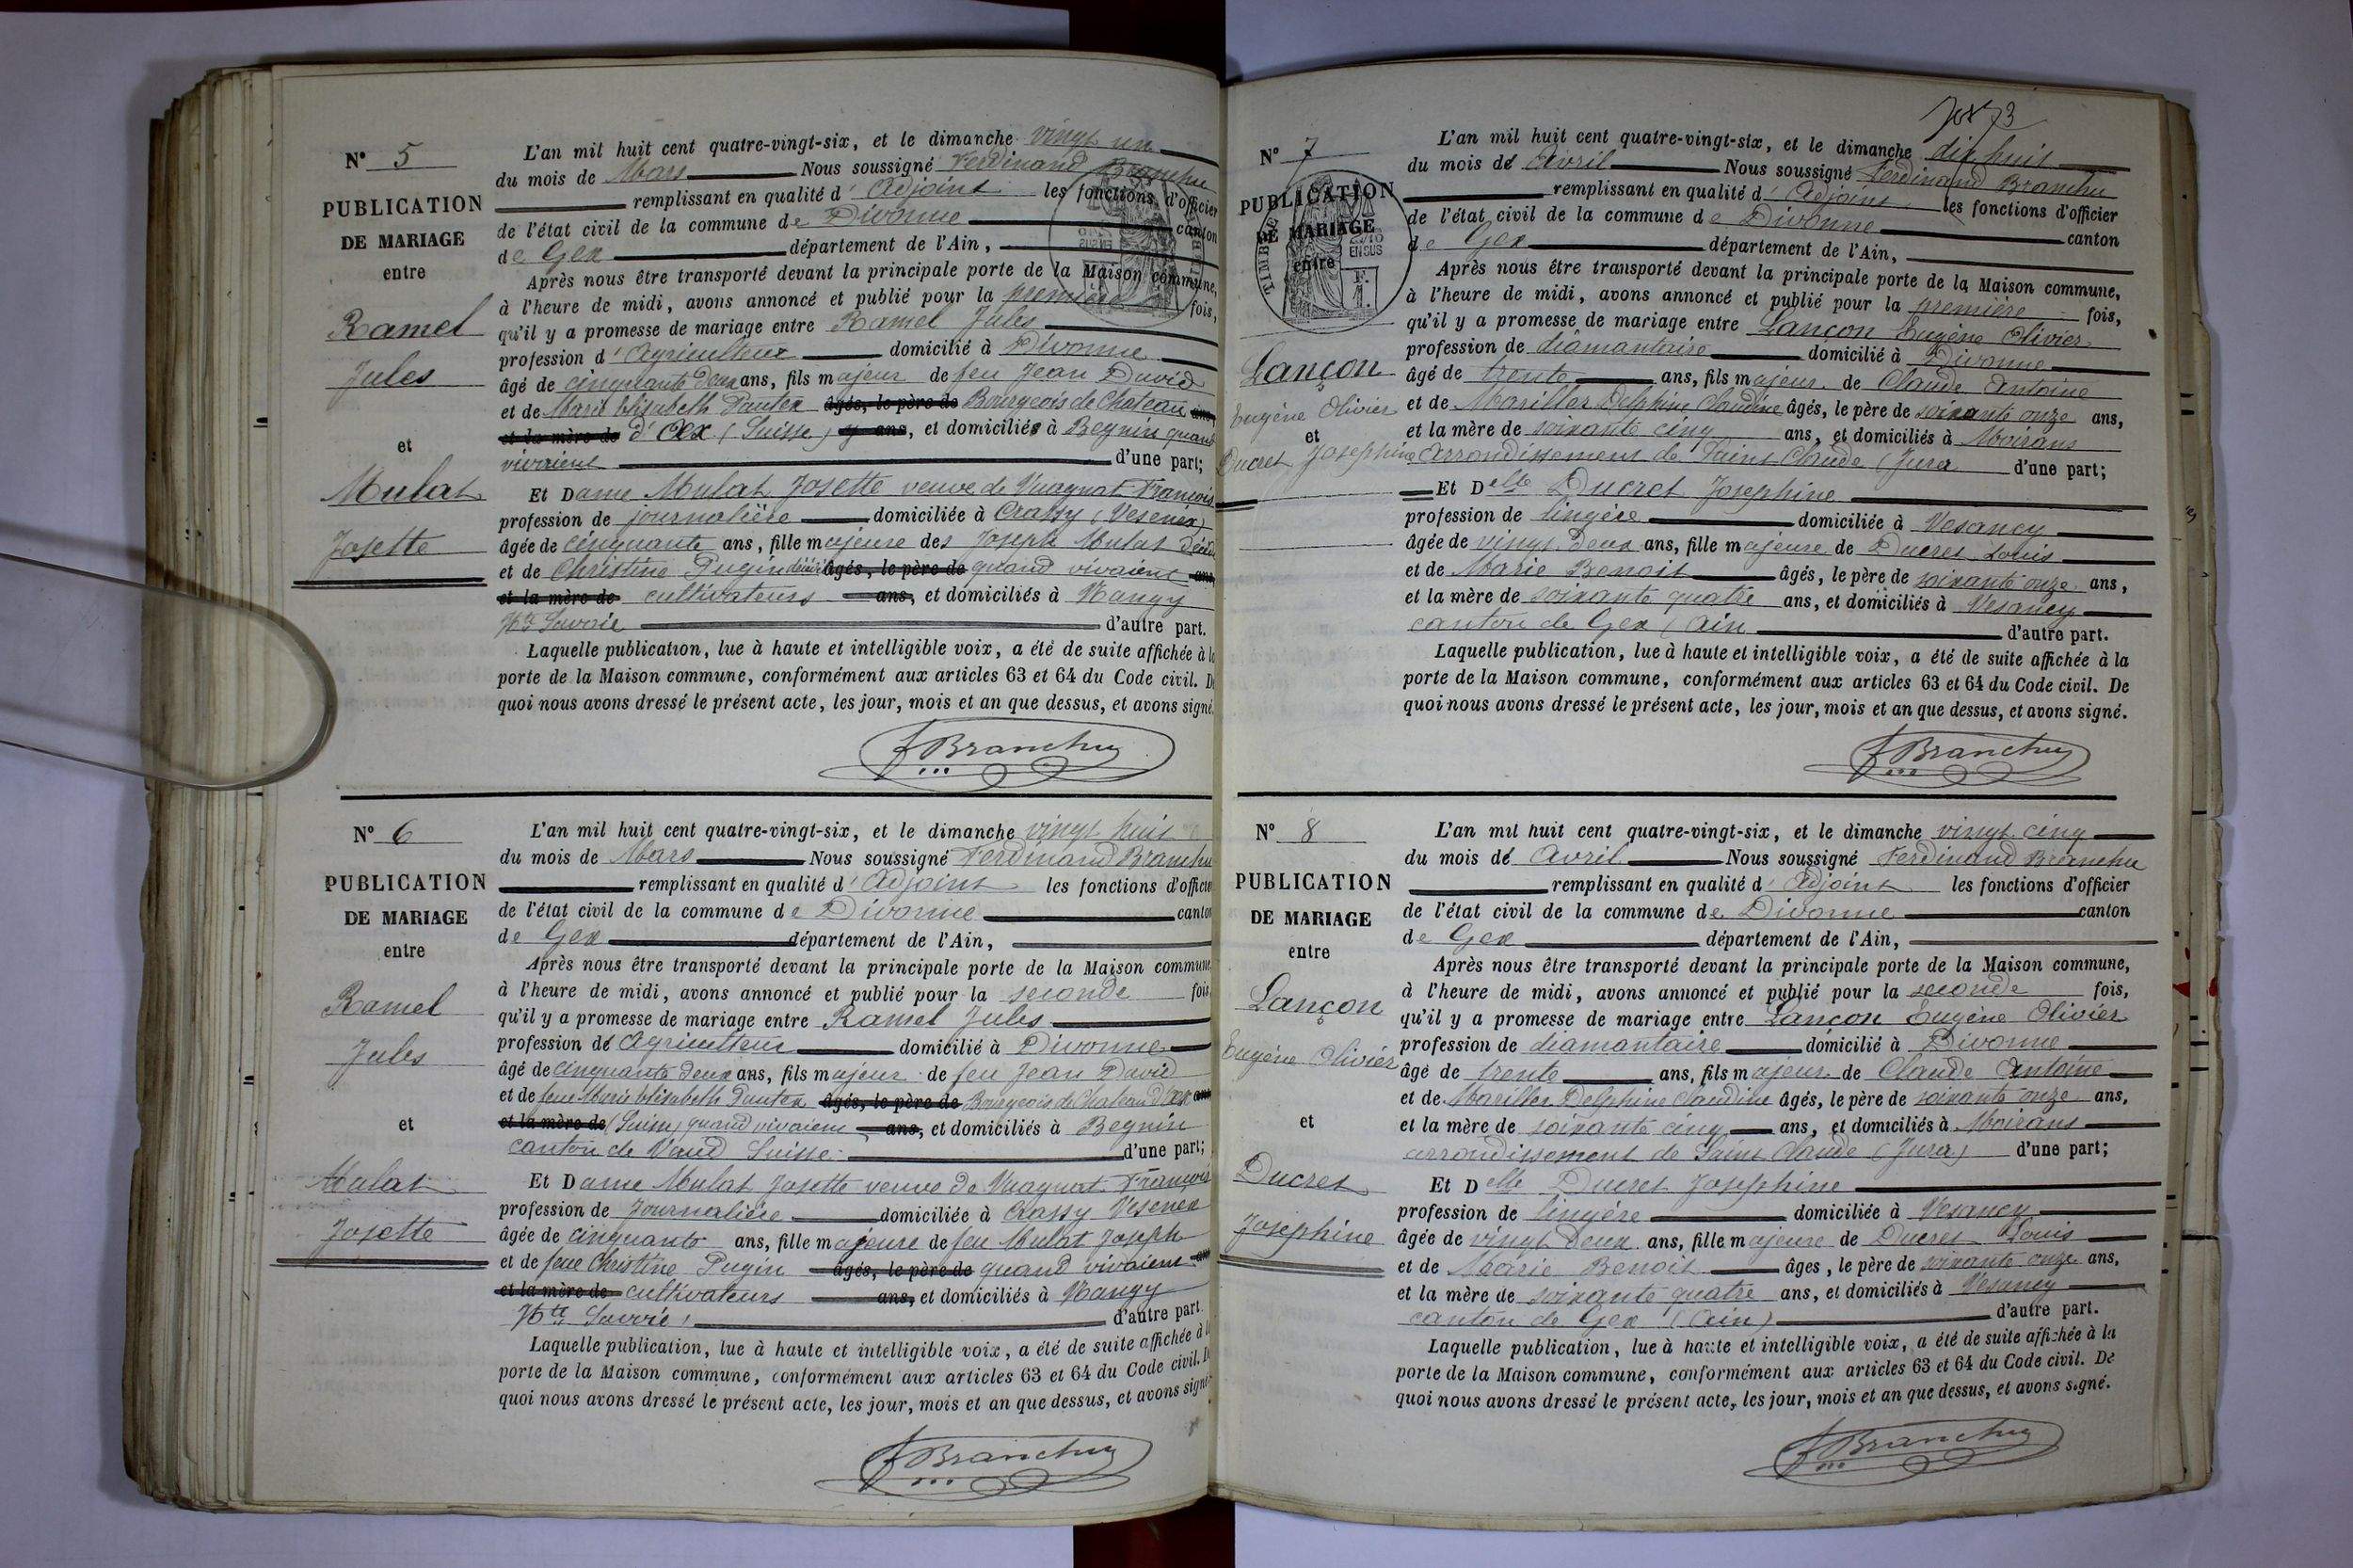 N° 5
PUBLICATION
DE MARIAGE
entre
Ramel
Jules
et
Mulat
Josette
L'an mil huit cent quatre-vingt-six, et le dimanche vingt un
du mois de Mars Nous soussigné Ferdinand Branchu
remplissant en qualité d'Adjoint les fonctions d'officier
de l'état civil de la commune de Divonne canton
de Gex département de l'Ain,
Après nous être transporté devant la principale porte de la Maison commune,
à l'heure de midi, avons annoncé et publié pour la première fois,
qu'il y a promesse de mariage entre Ramel Jules
profession d'Agriculteur domicilié à Divonne
âgé de cinquante deux ans, fils majeur de feu Jean David
et de Marie Elisabeth Pauten âgés, le père de Bourgeois de Chateau ans,
et la mère de d'Oex (Suisse) ans, et domiciliés à Begnin quand
vivaient d'une part;
Et Dame Mulat Josette veuve de Vuagnat François
profession de journalière domiciliée à Crassy (Vesenex)
âgée de cinquante ans, fille majeure des Joseph Mulat
et de Christine Pugin âgés, le père de quand vivaient ans,
et la mère de cultivateurs ans, et domiciliés à Nangy
Hte Savoie d'autre part.
Laquelle publication, lue à haute et intelligible voix, a été de suite affichée à la
porte de la Maison commune, conformément aux articles 63 et 64 du Code civil. De
quoi nous avons dressé le présent acte, les jour, mois et an que dessus, et avons signé.
F Branchu
N° 6
PUBLICATION
DE MARIAGE
entre
Ramel
Jules
et
Mulat
Josette
L'an mil huit cent quatre-vingt-six, et le dimanche vingt huit
du mois de Mars Nous soussigné Ferdinand Branchu
remplissant en qualité d'Adjoint les fonctions d'officier
de l'état civil de la commune de Divonne canton
de Gex département de l'Ain,
Après nous être transporté devant la principale porte de la Maison commune
à l'heure de midi, avons annoncé et publié pour la seconde fois,
qu'il y a promesse de mariage entre Ramel Jules
profession d'Agriculteur domicilié à Divonne
âgé de cinquante deux ans, fils majeur de feu Jean David
et de feue Marie Elisabeth Pauten âgés, le père de Bourgeois de Chateau d'Oex ans
et la mère de (Suisse) quand vivaient ans, et domiciliés à Begnin
canton de Vaud Suisse d'une part;
Et Dame Mulat Josette veuve de Vuagnat François
profession de Journalière domiciliée à Crassy Vesenex
âgée de cinquante ans, fille majeure de feu Mulat Joseph
et de feue Christine Pugin âgés, le père de quand vivaient ans
et la mère de cultivateurs ans, et domiciliés à Nangy
Hte Savoie d'autre part.
Laquelle publication, lue à haute et intelligible voix, a été de suite affichée à la
porte de la Maison commune, conformément aux articles 63 et 64 du Code civil. De
quoi nous avons dressé le présent acte, les jour, mois et an que dessus, et avons signé.
F Branchu
N° 7
PUBLICATION
DE MARIAGE
entre
Lançon
Eugène Olivier
et
Ducret Josephine
L'an mil huit cent quatre-vingt-six, et le dimanche dix huit
du mois de Avril Nous soussigné Ferdinand Branchu
remplissant en qualité d'Adjoint les fonctions d'officier
de l'état civil de la commune de Divonne canton
de Gex département de l'Ain,
Après nous être transporté devant la principale porte de la Maison commune,
à l'heure de midi, avons annoncé et publié pour la première fois,
qu'il y a promesse de mariage entre Lançon Eugène Olivier
profession de diamantaire domicilié à Divonne
âgé de trente ans, fils majeur de Claude Antoine
et de Mariller Delphine Claudine âgés, le père de soixante onze ans,
et la mère de soixante cinq ans, et domiciliés à Moirans
Arrondissement de Saint Claude (Jura d'une part;
Et Delle Ducret Josephine
profession de lingère domiciliée à Vesancy
âgée de vingt deux ans, fille majeure de Ducret Louis
et de Marie Benoit âgés, le père de soixante onze ans,
et la mère de soixante quatre ans, et domiciliés à Vesancy
canton de Gex (Ain d'autre part.
Laquelle publication, lue à haute et intelligible voix, a été de suite affichée à la
porte de la Maison commune, conformément aux articles 63 et 64 du Code civil. De
quoi nous avons dressé le présent acte, les jour, mois et an que dessus, et avons signé.
F Branchu
N° 8
PUBLICATION
DE MARIAGE
entre
Lançon
Eugène Olivier
et
Ducret
Josephine
L'an mil huit cent quatre-vingt-six, et le dimanche vingt cinq
du mois de Avril Nous soussigné Ferdinand Branchu
remplissant en qualité d'Adjoint les fonctions d'officier
de l'état civil de la commune de Divonne canton
de Gex département de l'Ain,
Après nous être transporté devant la principale porte de la Maison commune,
à l'heure de midi, avons annoncé et publié pour la seconde fois,
qu'il y a promesse de mariage entre Lançon Eugène Olivier
profession de diamantaire domicilié à Divonne
âgé de trente ans, fils majeur de Claude Antoine
et de Mariller Delphine Claudine âgés, le père de soixante onze ans,
et la mère de soixante cinq ans, et domiciliés à Moirans
arrondissement de Saint Claude (Jura) d'une part;
Et Delle Ducret Josephine
profession de lingère domiciliée à Vesancy
âgée de vingt deux ans, fille majeure de Ducret Louis
et de Marie Benoit âges, le père de soixante onze ans,
et la mère de soixante quatre ans, et domiciliés à Vesancy
canton de Gex (Ain) d'autre part.
Laquelle publication, lue à haute et intelligible voix, a été de suite affichée à la
porte de la Maison commune, conformément aux articles 63 et 64 du Code civil. De
quoi nous avons dressé le présent acte, les jour, mois et an que dessus, et avons signé.
F Branchu